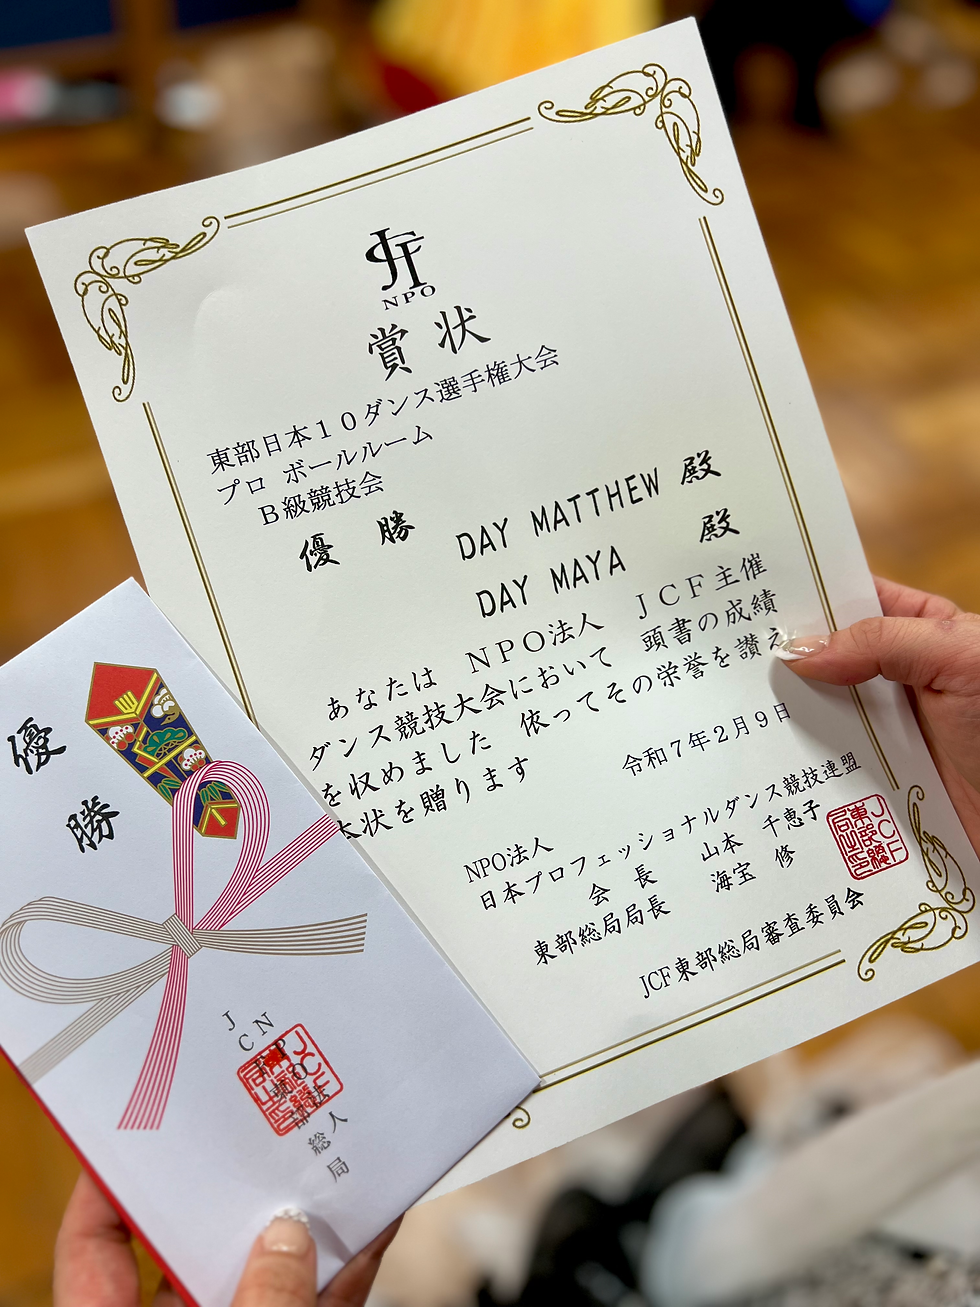 JCF
NPO
賞状
東部日本10ダンス選手権大会
プロ ボールルーム
B級競技会
優 勝 DAY MATTHEW 殿
DAY MAYA 殿
あなたは NPO法人 JCF主催
ダンス競技大会において 頭書の成績
を収めました 依ってその栄誉を讃え
状を贈ります
令和7年2月9日
NPO法人
日本プロフェッショナルダンス競技連盟
会 長 山本 千恵子
東部総局局長 海宝 修
JCF東部総局審査委員会
JCF
東部総
局之印
優勝
NPO法人
JCF東部総局
JCF
東部総
局之印